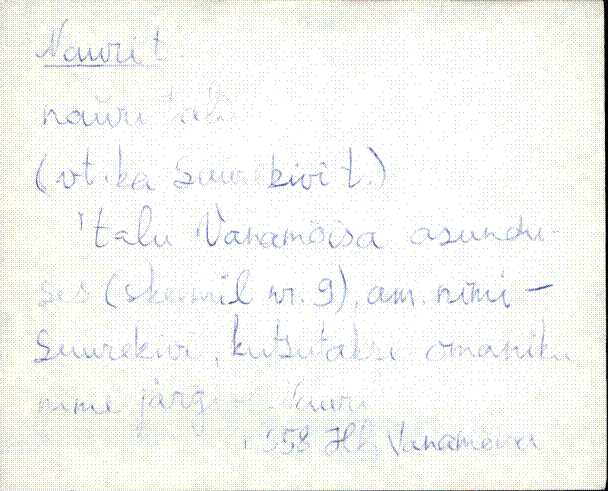 Nauri t.
nauri talu
(vt. ka Suurekivi t.)
talu Vanamõisa asundu-
ses (skeemil nr. 9), am. nimi –
Suurekivi, kutsutakse omaniku
nime järgi – Nauri
1958 Hlj Vanamõisa